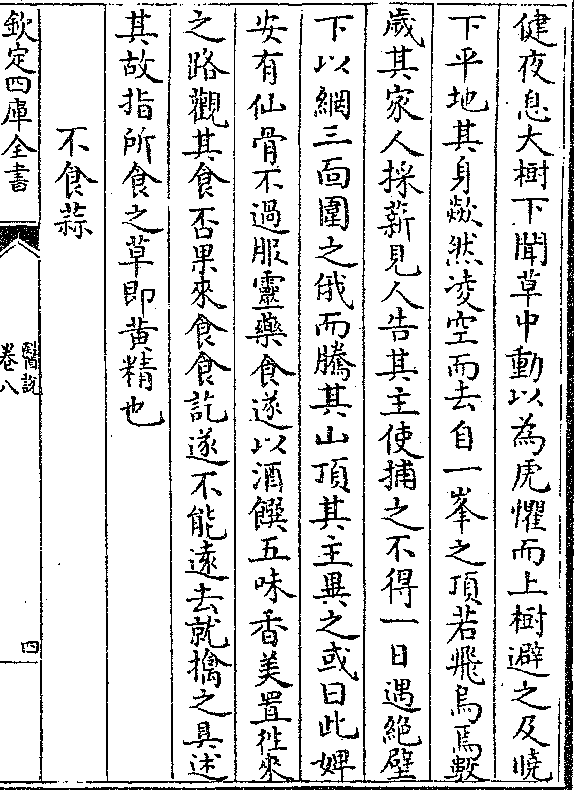 健夜息大樹下聞草中動以為虎懼而上樹避之及曉
下平地其身歘然凌空而去自一峯之頂若飛鳥焉數
歲其家人採薪見人告其主使捕之不得一日遇絶壁
下以網三面圍之俄而騰其山頂其主異之或曰此婢
安有仙骨不過服靈藥食遂以酒饌五味香美置徃來
之路觀其食否果來食食訖遂不能逺去就擒之具述
其故指所食之草即黄精也
不食蒜
欽定四庫全書
醫說
卷八
四